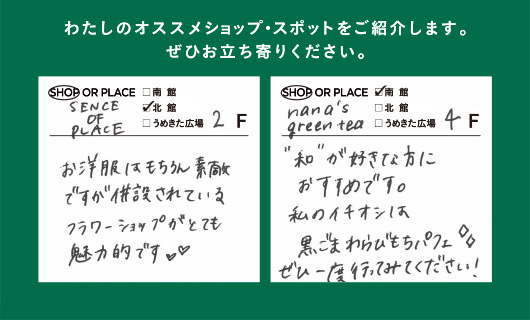 わたしのオススメショップ・スポットをご紹介します。
ぜひお立ち寄りください。
SHOP OR PLACE
□南 館
☑北 館
□うめきた広場
SENCE
OF
PLACE
2 F
お洋服はもちろん素敵
ですが併設されている
フラワーショップがとても
魅力的です♥♡
SHOP OR PLACE
□南 館
☑北 館
□うめきた広場
nana's
green tea
4 F
"和"が好きな方に
おすすめです。
私のイチオシは
黒ごまわらびもちパフェ◇◇
ぜひ一度行ってみてください!